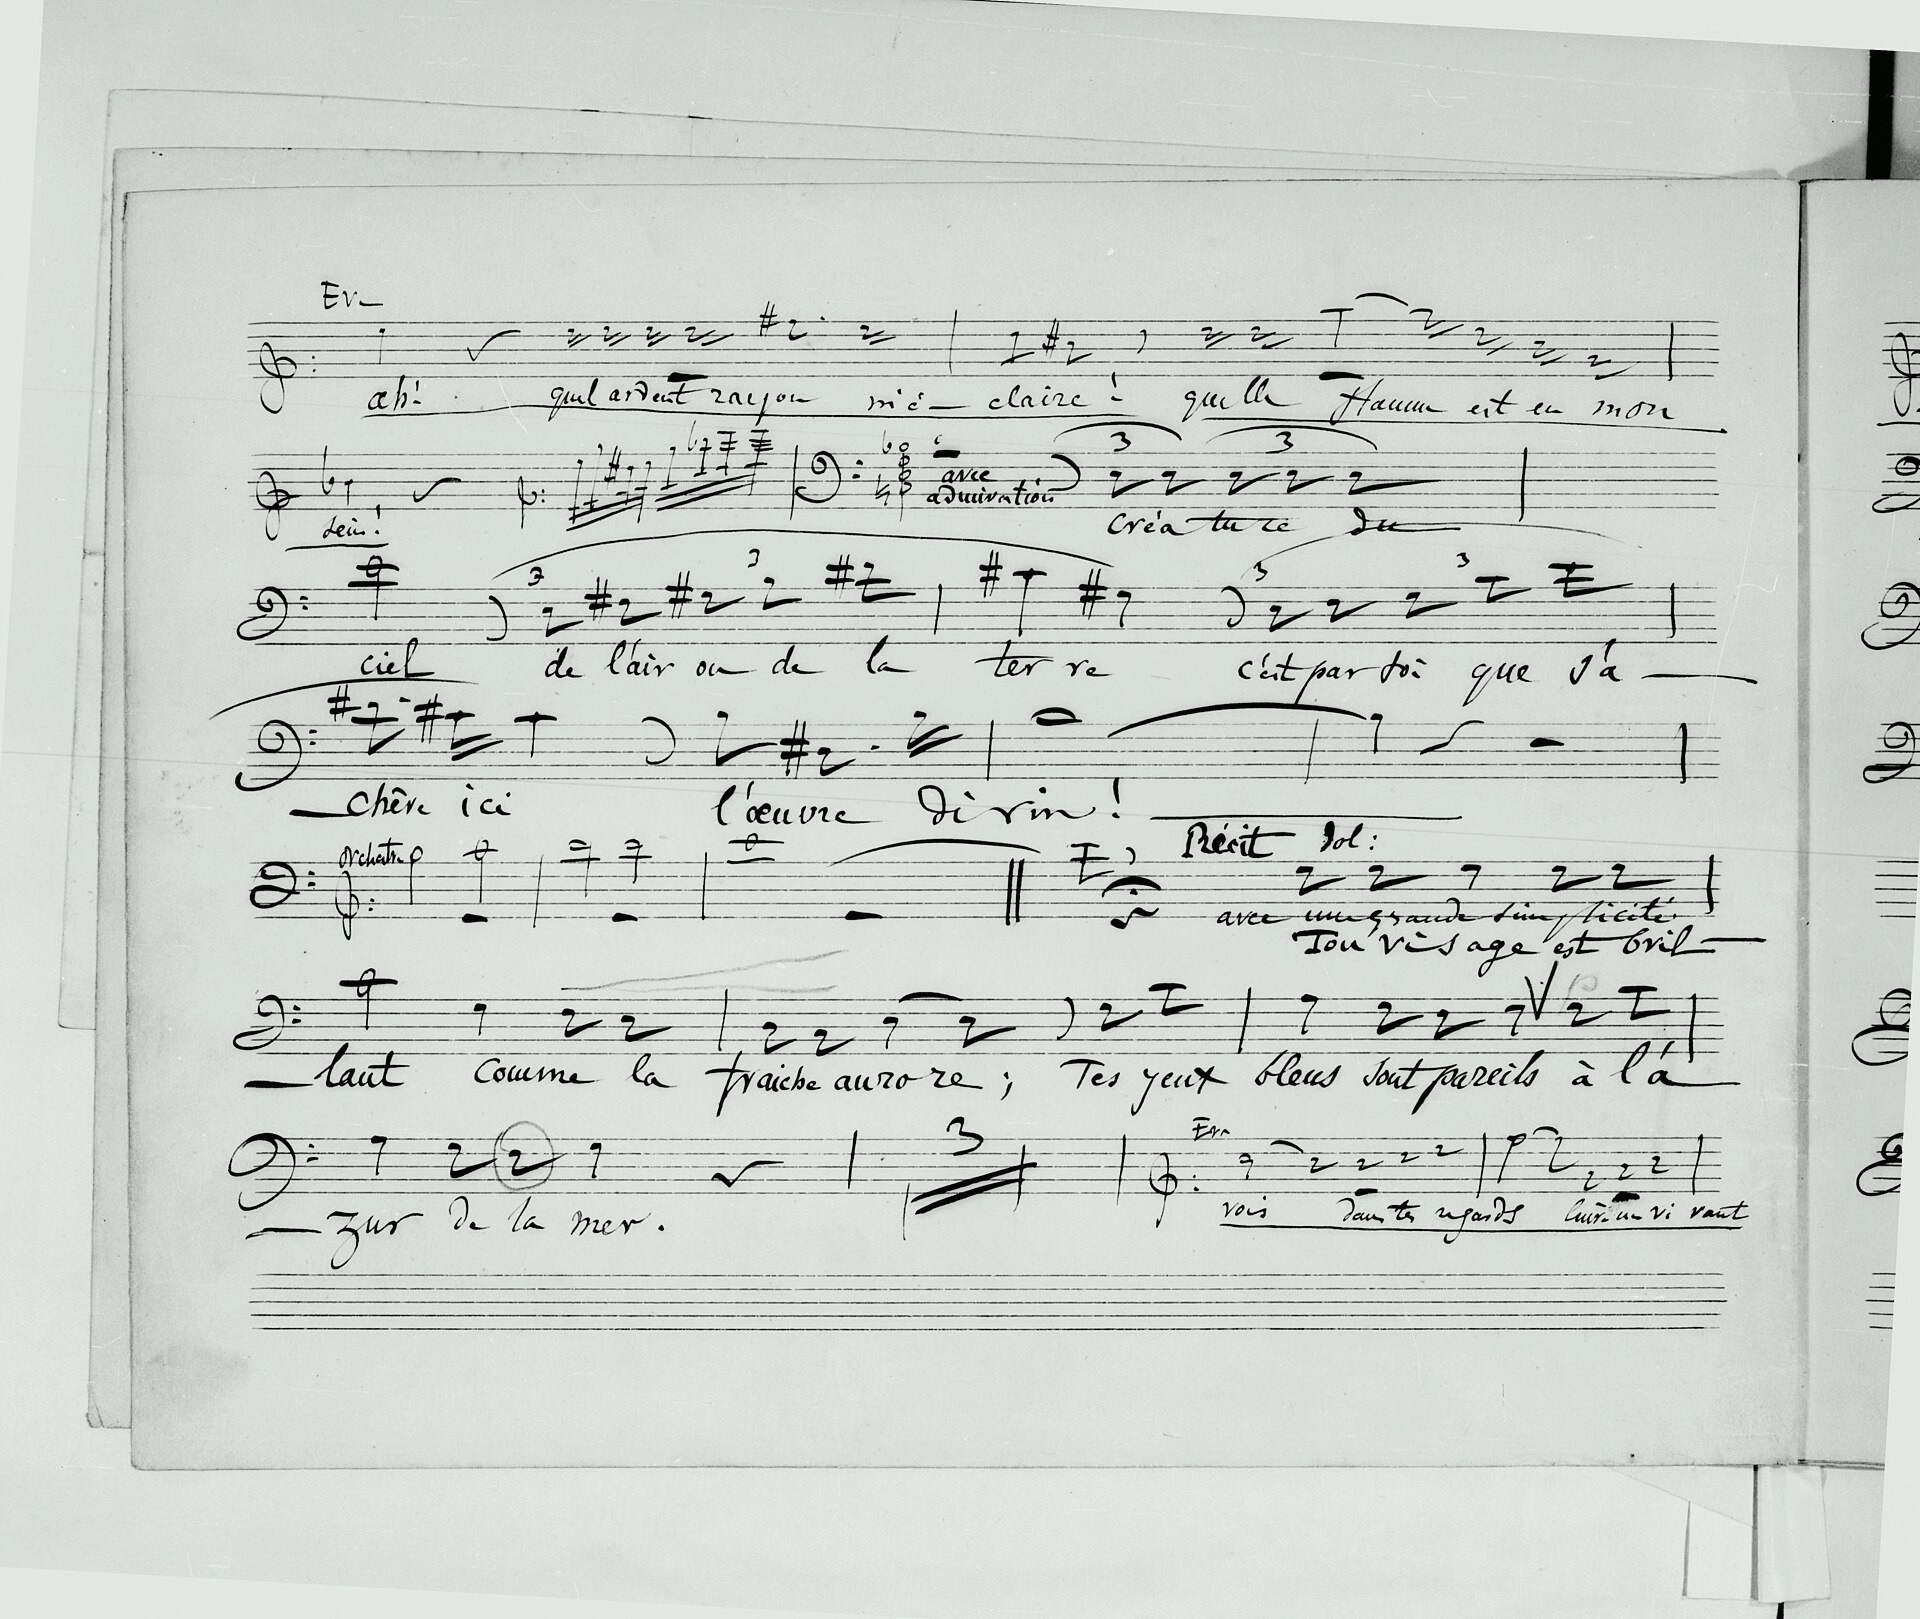 Ev
ah! quel ardent rayon m'é - claire! quelle flamme est en mon
sein!
avec
admiration
3 3
créa tu re du
3 3 3 3
ciel de l'air ou de la ter re c'est par toi que s'a —
— chêve ici l'œuvre divin!
orchestre
Récit Vol:
avec une grande simplicité.
Ton visage est bril —
— lant comme la fraiche aurore; Tes yeux bleus sont pareils à l'a —
3
Ev
— zur de la mer.
vois dans tes regards luire un vi vant